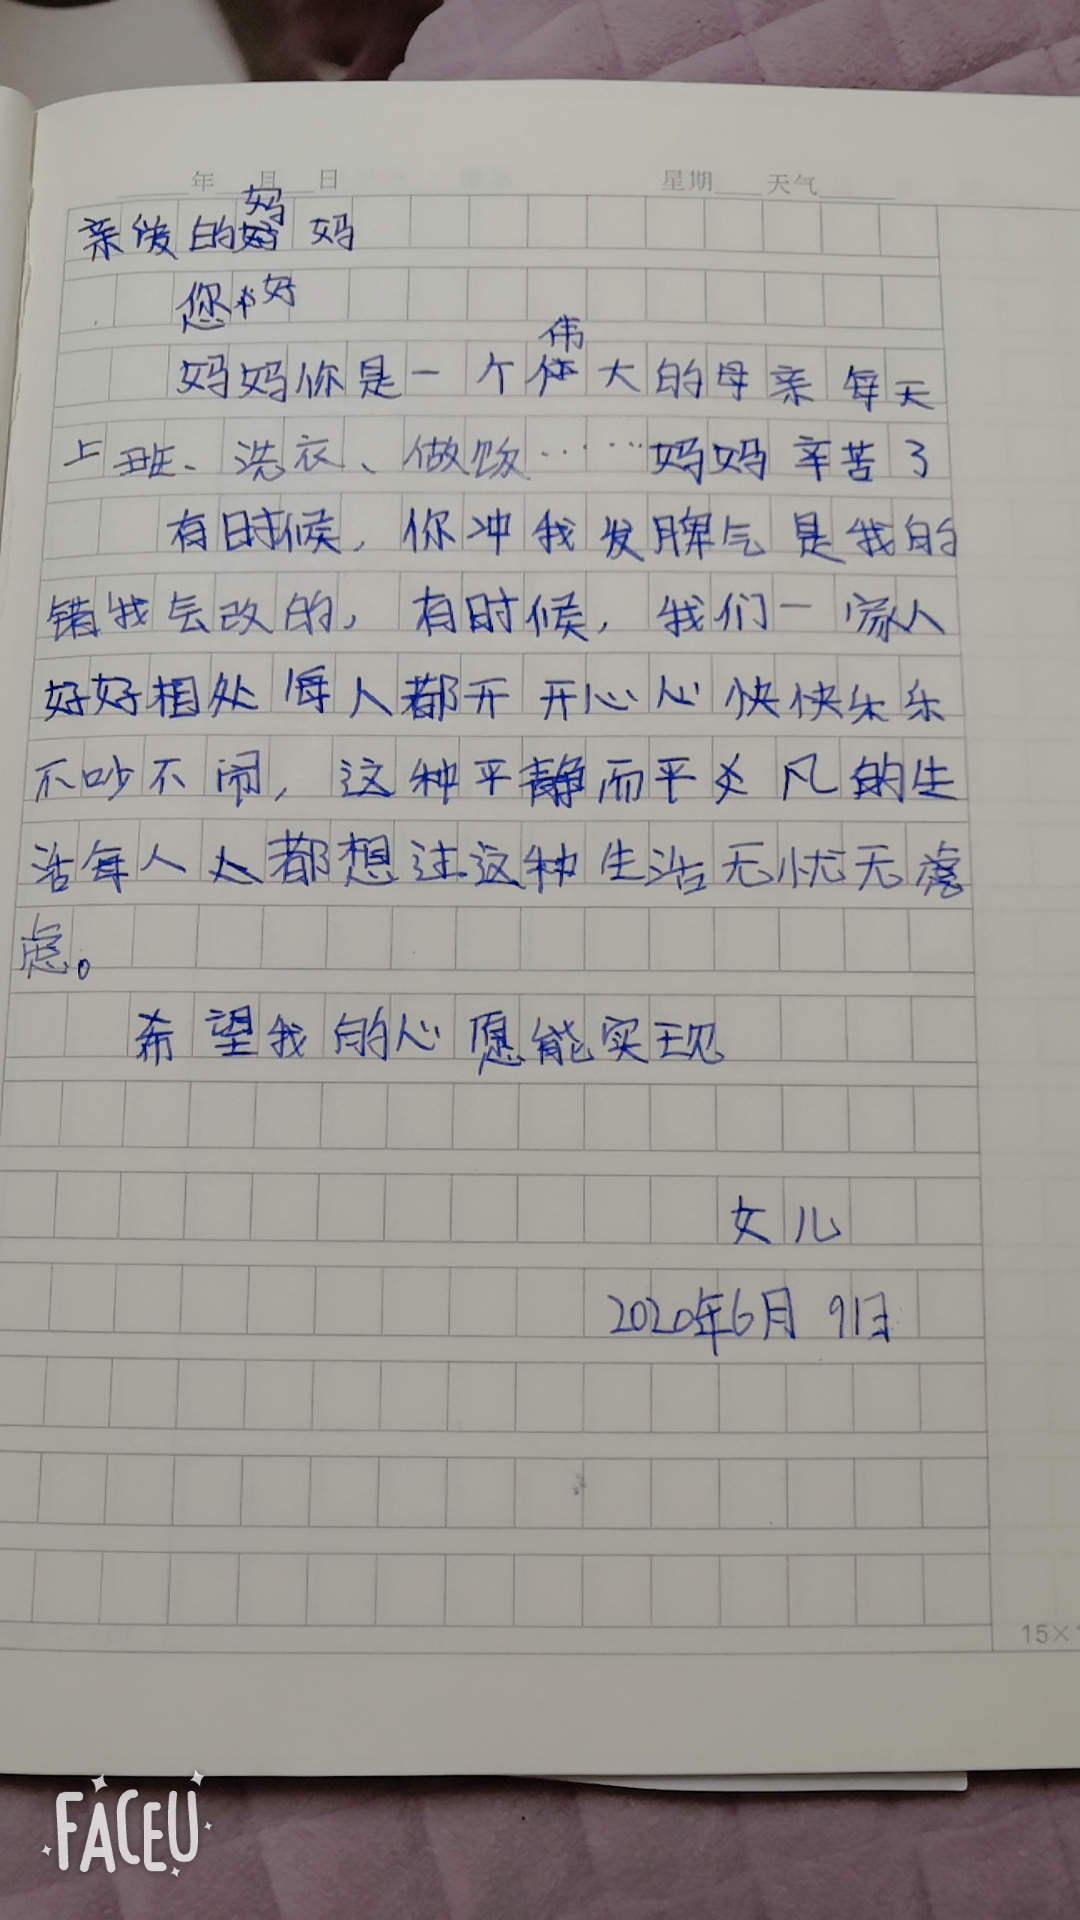 年 月 日 星期 天气
亲爱的妈妈
您好
妈妈你是一个伟大的母亲每天
上班、洗衣、做饭……妈妈辛苦了
有时候,你冲我发脾气是我的
错我会改的,有时候,我们一家人
好好相处每人都开开心心快快乐乐
不吵不闹,这种平静而平凡的生
活每人都想过这种生活无忧无
虑。
希望我的心愿能实现
女儿
2020年6月9日
15×
FACEU